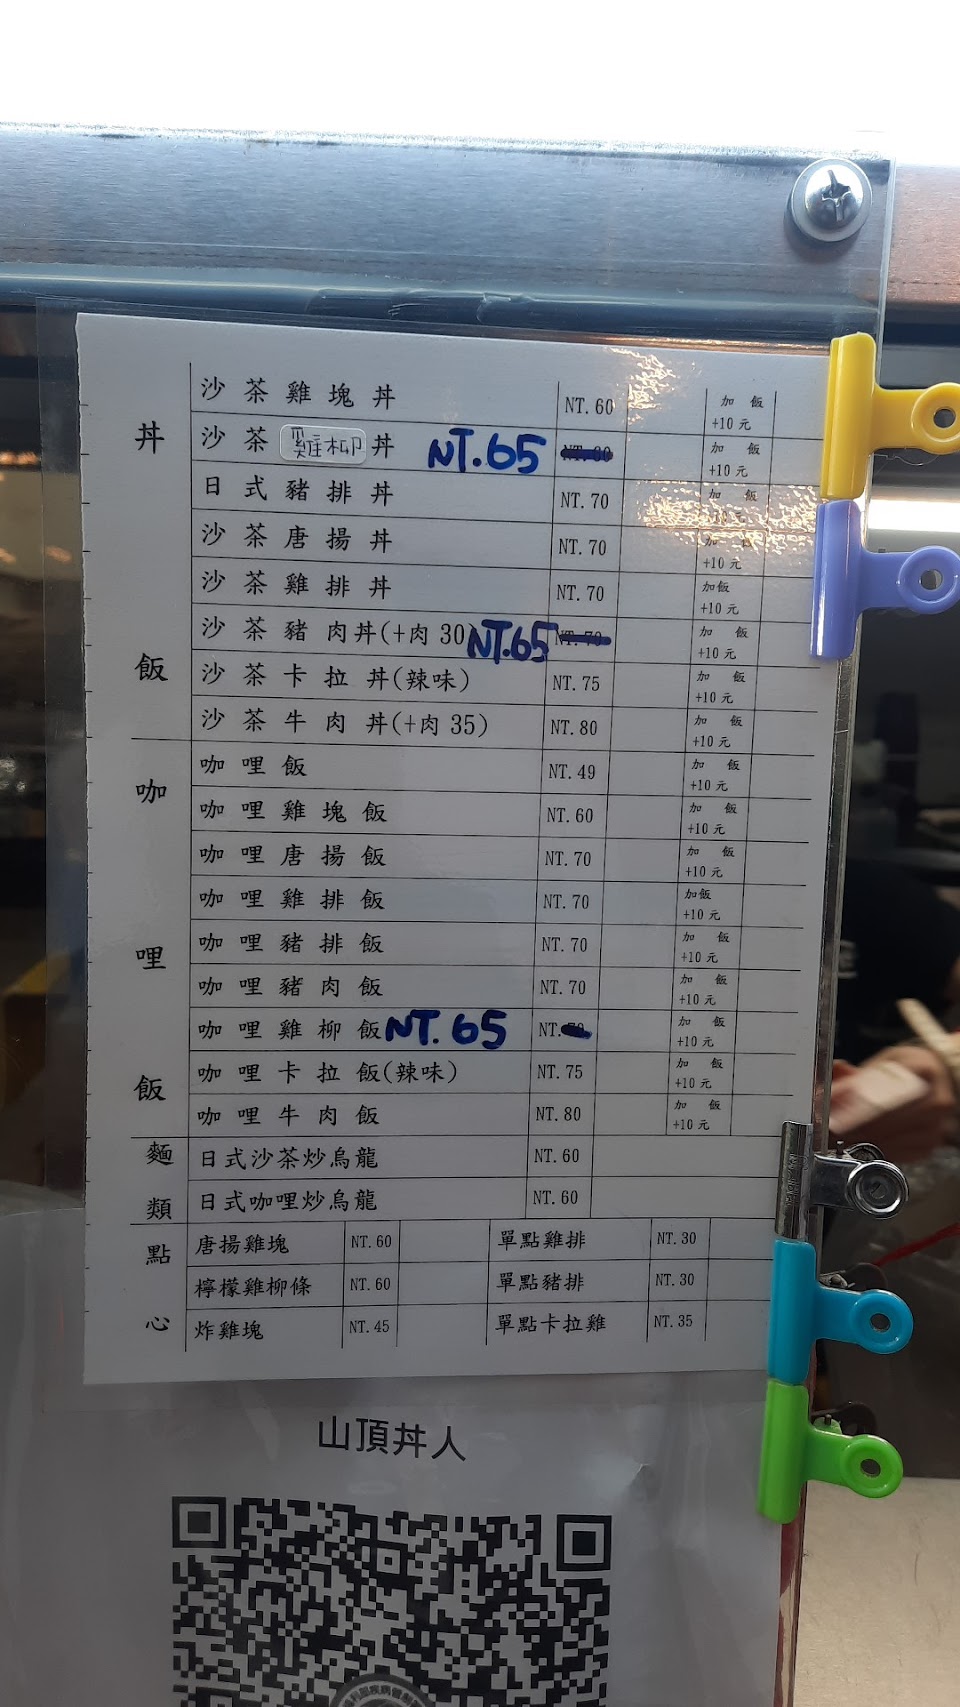 丼飯
沙茶雞塊丼 NT.60 加飯 +10元
沙茶雞柳丼 NT.65 加飯 +10元
日式豬排丼 NT.70 加飯
沙茶唐揚丼 NT.70 +10元
沙茶雞排丼 NT.70 加飯 +10元
沙茶豬肉丼(+肉30) NT.65 NT.70 加飯 +10元
沙茶卡拉丼(辣味) NT.75 加飯 +10元
沙茶牛肉丼(+肉35) NT.80 加飯 +10元
咖哩飯
咖哩飯 NT.49 加飯 +10元
咖哩雞塊飯 NT.60 加飯 +10元
咖哩唐揚飯 NT.70 加飯 +10元
咖哩雞排飯 NT.70 加飯 +10元
咖哩豬排飯 NT.70 加飯 +10元
咖哩豬肉飯 NT.70 加飯 +10元
咖哩雞柳飯 NT.65 NT. 加飯 +10元
咖哩卡拉飯(辣味) NT.75 加飯 +10元
咖哩牛肉飯 NT.80 加飯 +10元
麵類
日式沙茶炒烏龍 NT.60
日式咖哩炒烏龍 NT.60
點心
唐揚雞塊 NT.60 單點雞排 NT.30
檸檬雞柳條 NT.60 單點豬排 NT.30
炸雞塊 NT.45 單點卡拉雞 NT.35
山頂丼人